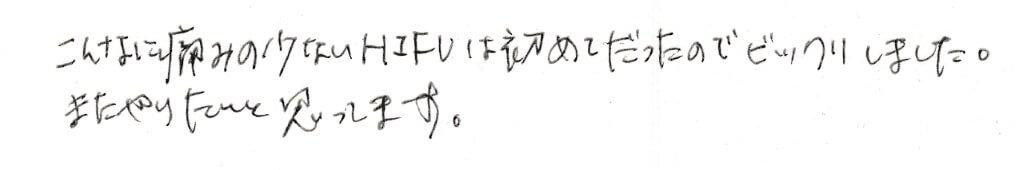 こんなに痛みの少ないHIFUは初めてだったのでビックリしました。
またやりたいと思ってます。